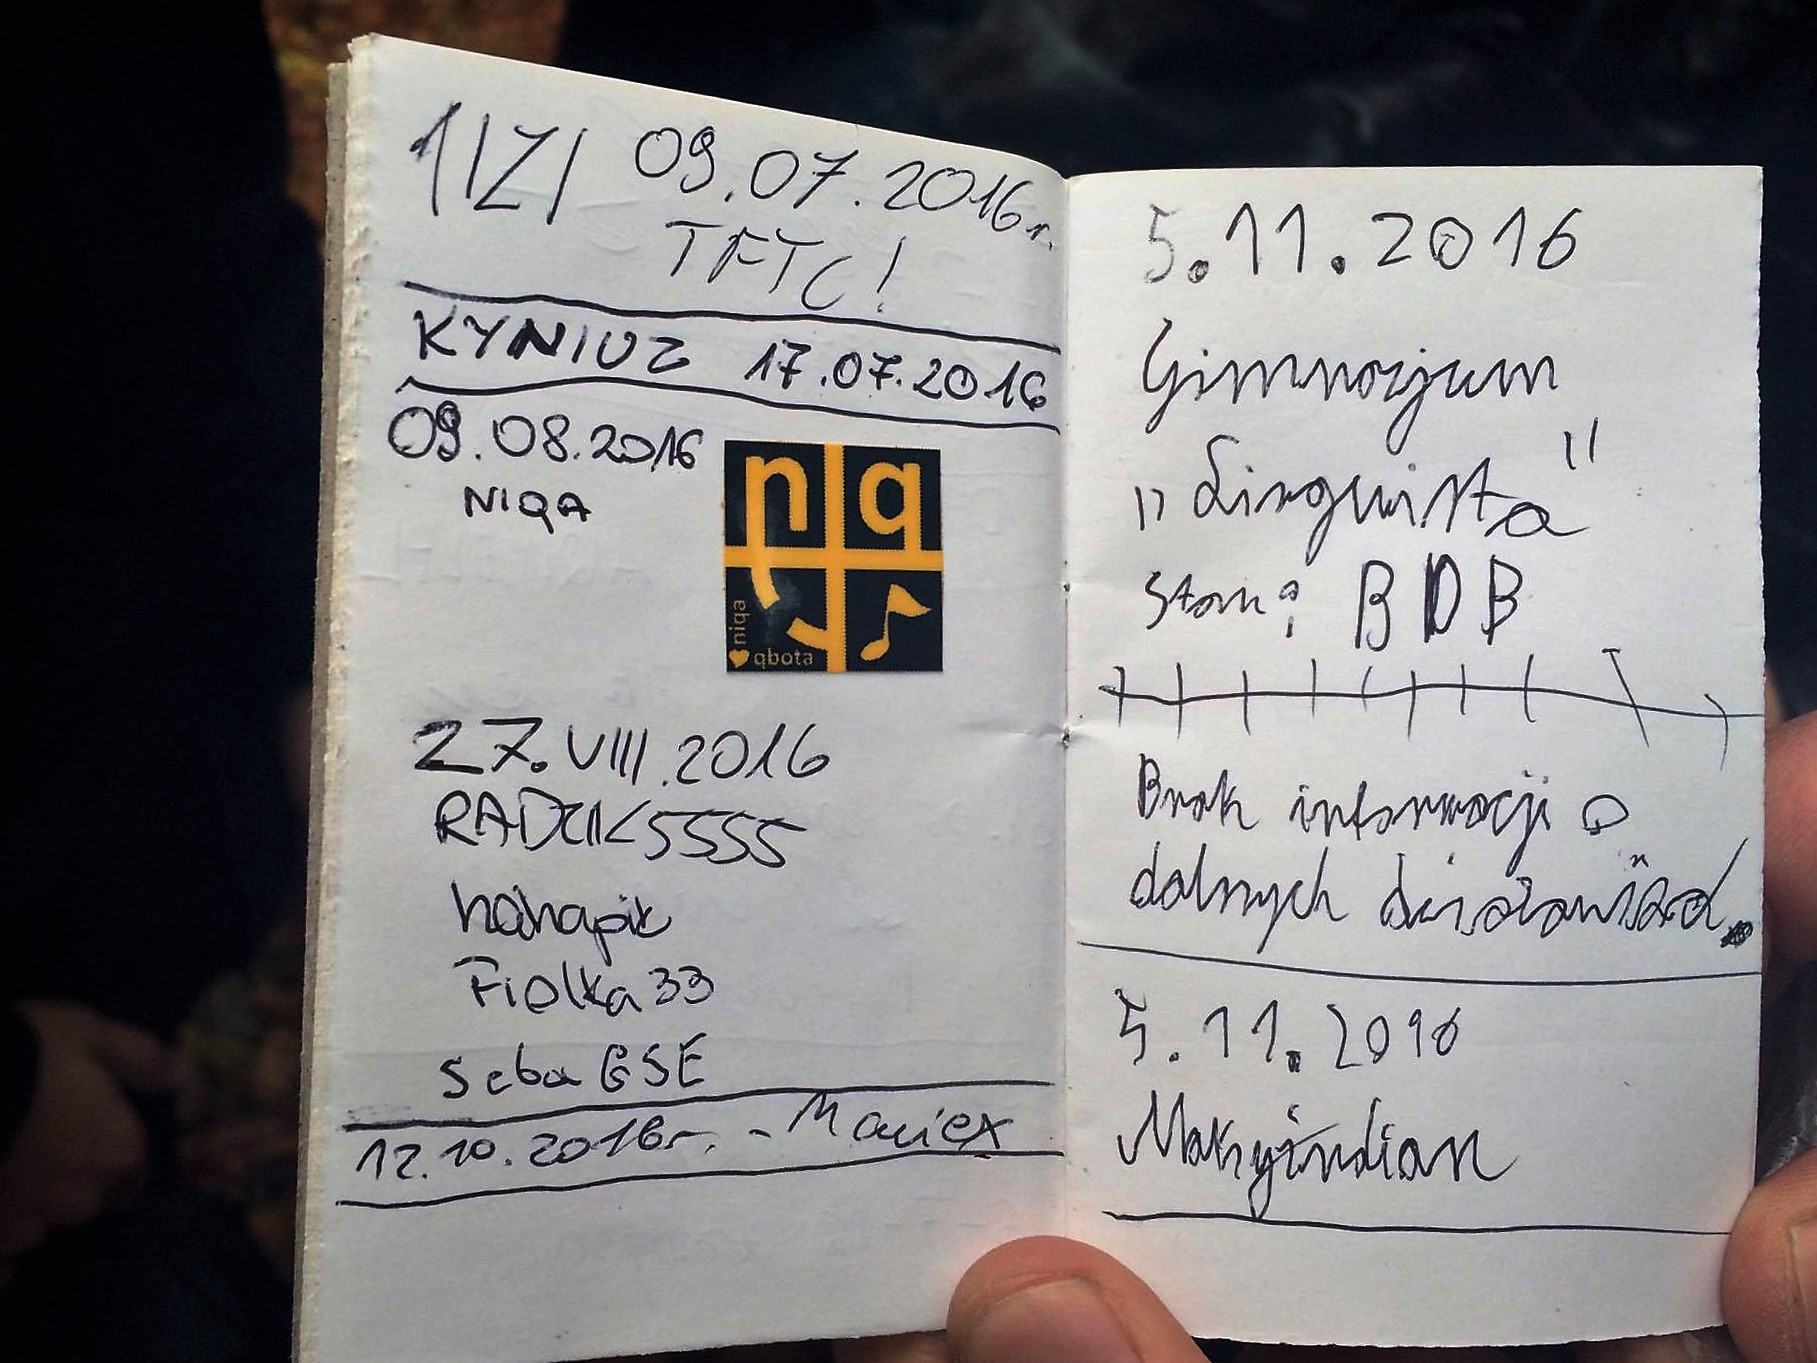 09.07.2016r.
TFTC!
KYNIUZ 17.07.2016
09.08.2016
NIQA
n q
niqa
qbota
27.VIII.2016
RADZIK5555
hanapik
Fiolka33
Seba GSE
12.10.2016r. - Maciex
5.11.2016
Gimnazjum
„Linguista”
Stan: BDB
Brak informacji o
dalnych
5.11.2016
Makyindian